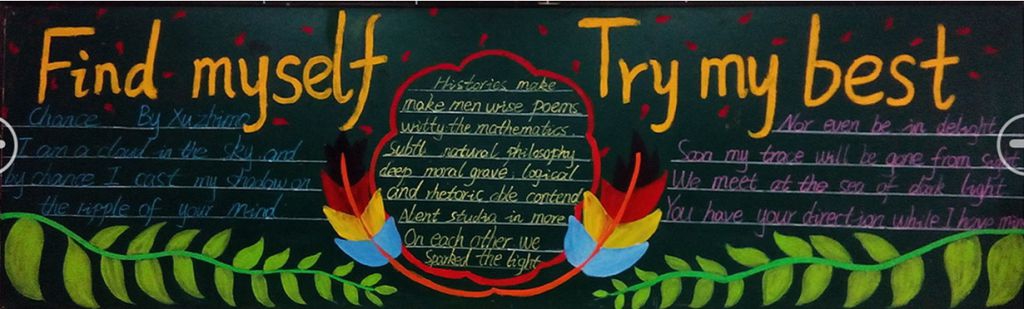 Find myself
Try my best
Chance By Xuzhimo
I am a cloud in the sky and
by chance I cast my shadow on
the ripple of your mind
Historics make
make men wise poems
witty the mathematics
subtl natural philosophy
deep moral grave logical
and rhetoric able contend
in more
On each other we
Sparked the light
Nor even be in delight
Soon my trace will be gone from sight
We meet at the sea of dark light
You have your direction while I have mine